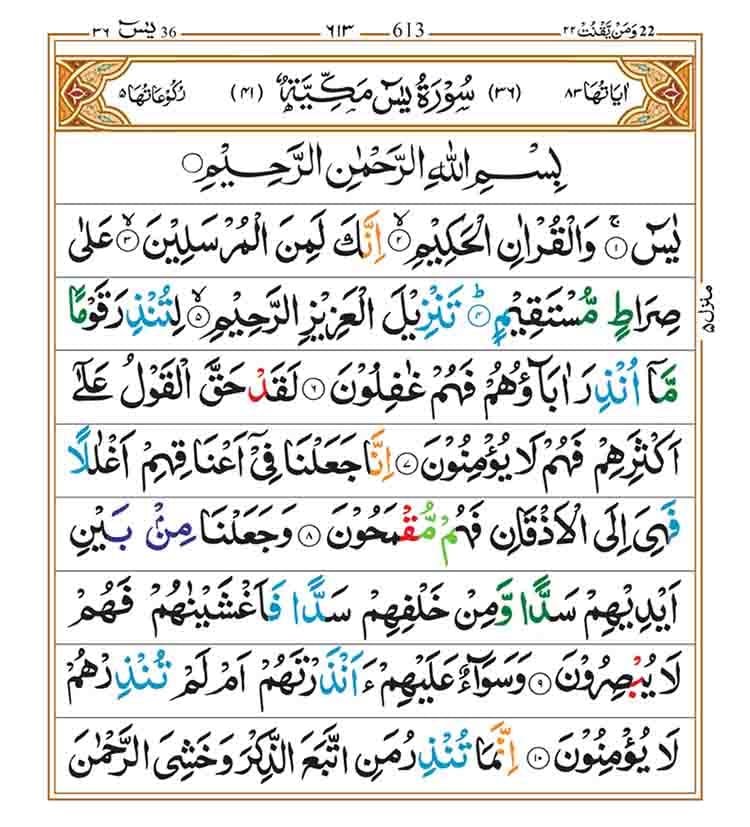 22 وَمَنْ يَّقْنُتْ ٢٢ 613 ٦١٣ 36 يٰسٓ ٣٦
اٰيَاتُهَا ٨٣ (٣٦) سُوْرَةُ يٰسٓ مَكِّيَّةٌ (٤١) رُكُوْعَاتُهَا ٥
بِسْمِ اللّٰهِ الرَّحْمٰنِ الرَّحِيْمِ
يٰسٓ ۚ ١ وَالْقُرْاٰنِ الْحَكِيْمِ ۙ ٢ اِنَّكَ لَمِنَ الْمُرْسَلِيْنَ ۙ ٣ عَلٰى
صِرَاطٍ مُّسْتَقِيْمٍ ؕ ٤ تَنْزِيْلَ الْعَزِيْزِ الرَّحِيْمِ ۙ ٥ لِتُنْذِرَ قَوْمًا
مَّاۤ اُنْذِرَ اٰبَآؤُهُمْ فَهُمْ غٰفِلُوْنَ ٦ لَقَدْ حَقَّ الْقَوْلُ عَلٰۤى
اَكْثَرِهِمْ فَهُمْ لَا يُؤْمِنُوْنَ ٧ اِنَّا جَعَلْنَا فِيْۤ اَعْنَاقِهِمْ اَغْلٰلًا
فَهِيَ اِلَى الْاَذْقَانِ فَهُمْ مُّقْمَحُوْنَ ٨ وَجَعَلْنَا مِنْۢ بَيْنِ
اَيْدِيْهِمْ سَدًّا وَّمِنْ خَلْفِهِمْ سَدًّا فَاَغْشَيْنٰهُمْ فَهُمْ
لَا يُبْصِرُوْنَ ٩ وَسَوَآءٌ عَلَيْهِمْ ءَاَنْذَرْتَهُمْ اَمْ لَمْ تُنْذِرْهُمْ
لَا يُؤْمِنُوْنَ ١٠ اِنَّمَا تُنْذِرُ مَنِ اتَّبَعَ الذِّكْرَ وَخَشِيَ الرَّحْمٰنَ
منزل ٥